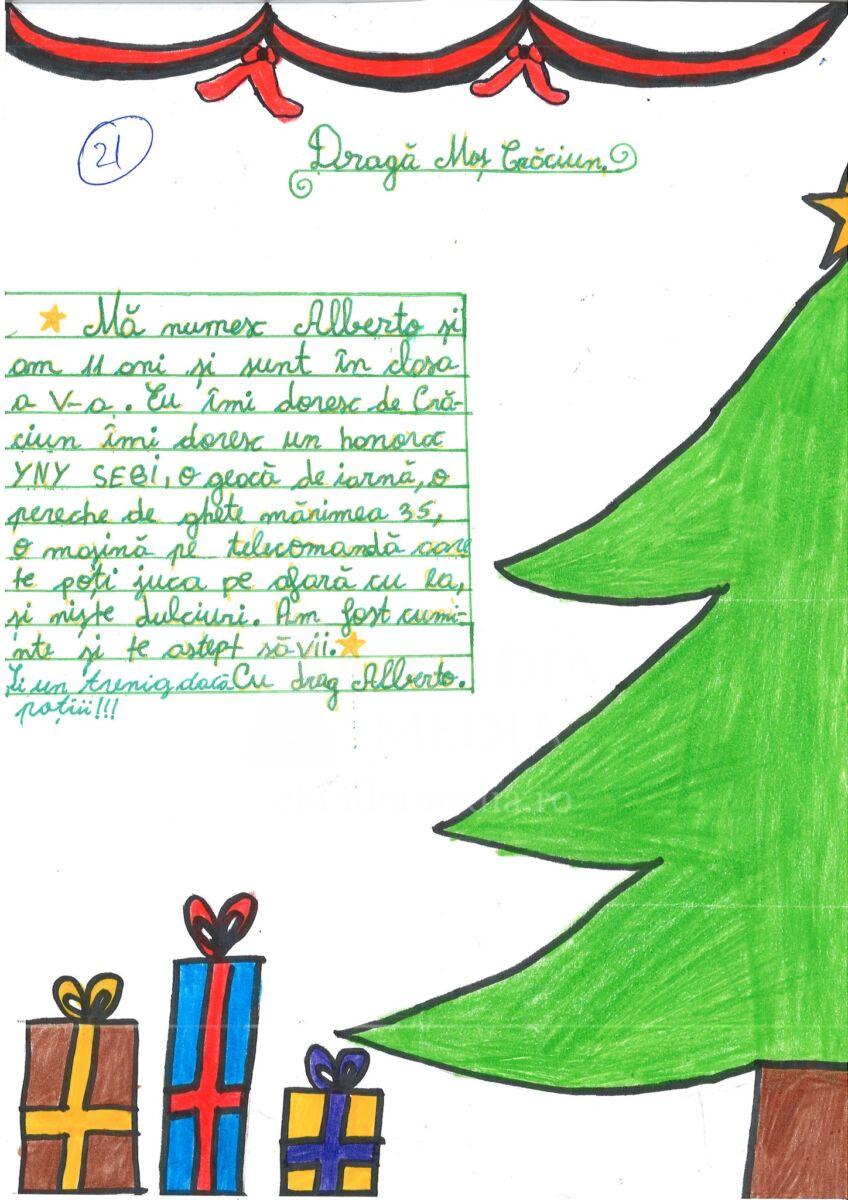 21
Dragă Moș Crăciun,
Mă numesc Alberto și
am 11 ani și sunt în clasa
a V-a. Eu îmi doresc de Cră-
ciun îmi doresc un honorac
YNY SEBI, o geacă de iarnă, o
pereche de ghete mărimea 35,
o mașină pe telecomandă care
te poți juca pe afară cu ea,
și niște dulciuri. Am fost cumi-
nte și te astept să vii.
Și un trening dacă Cu drag Alberto.
poțiii!!!